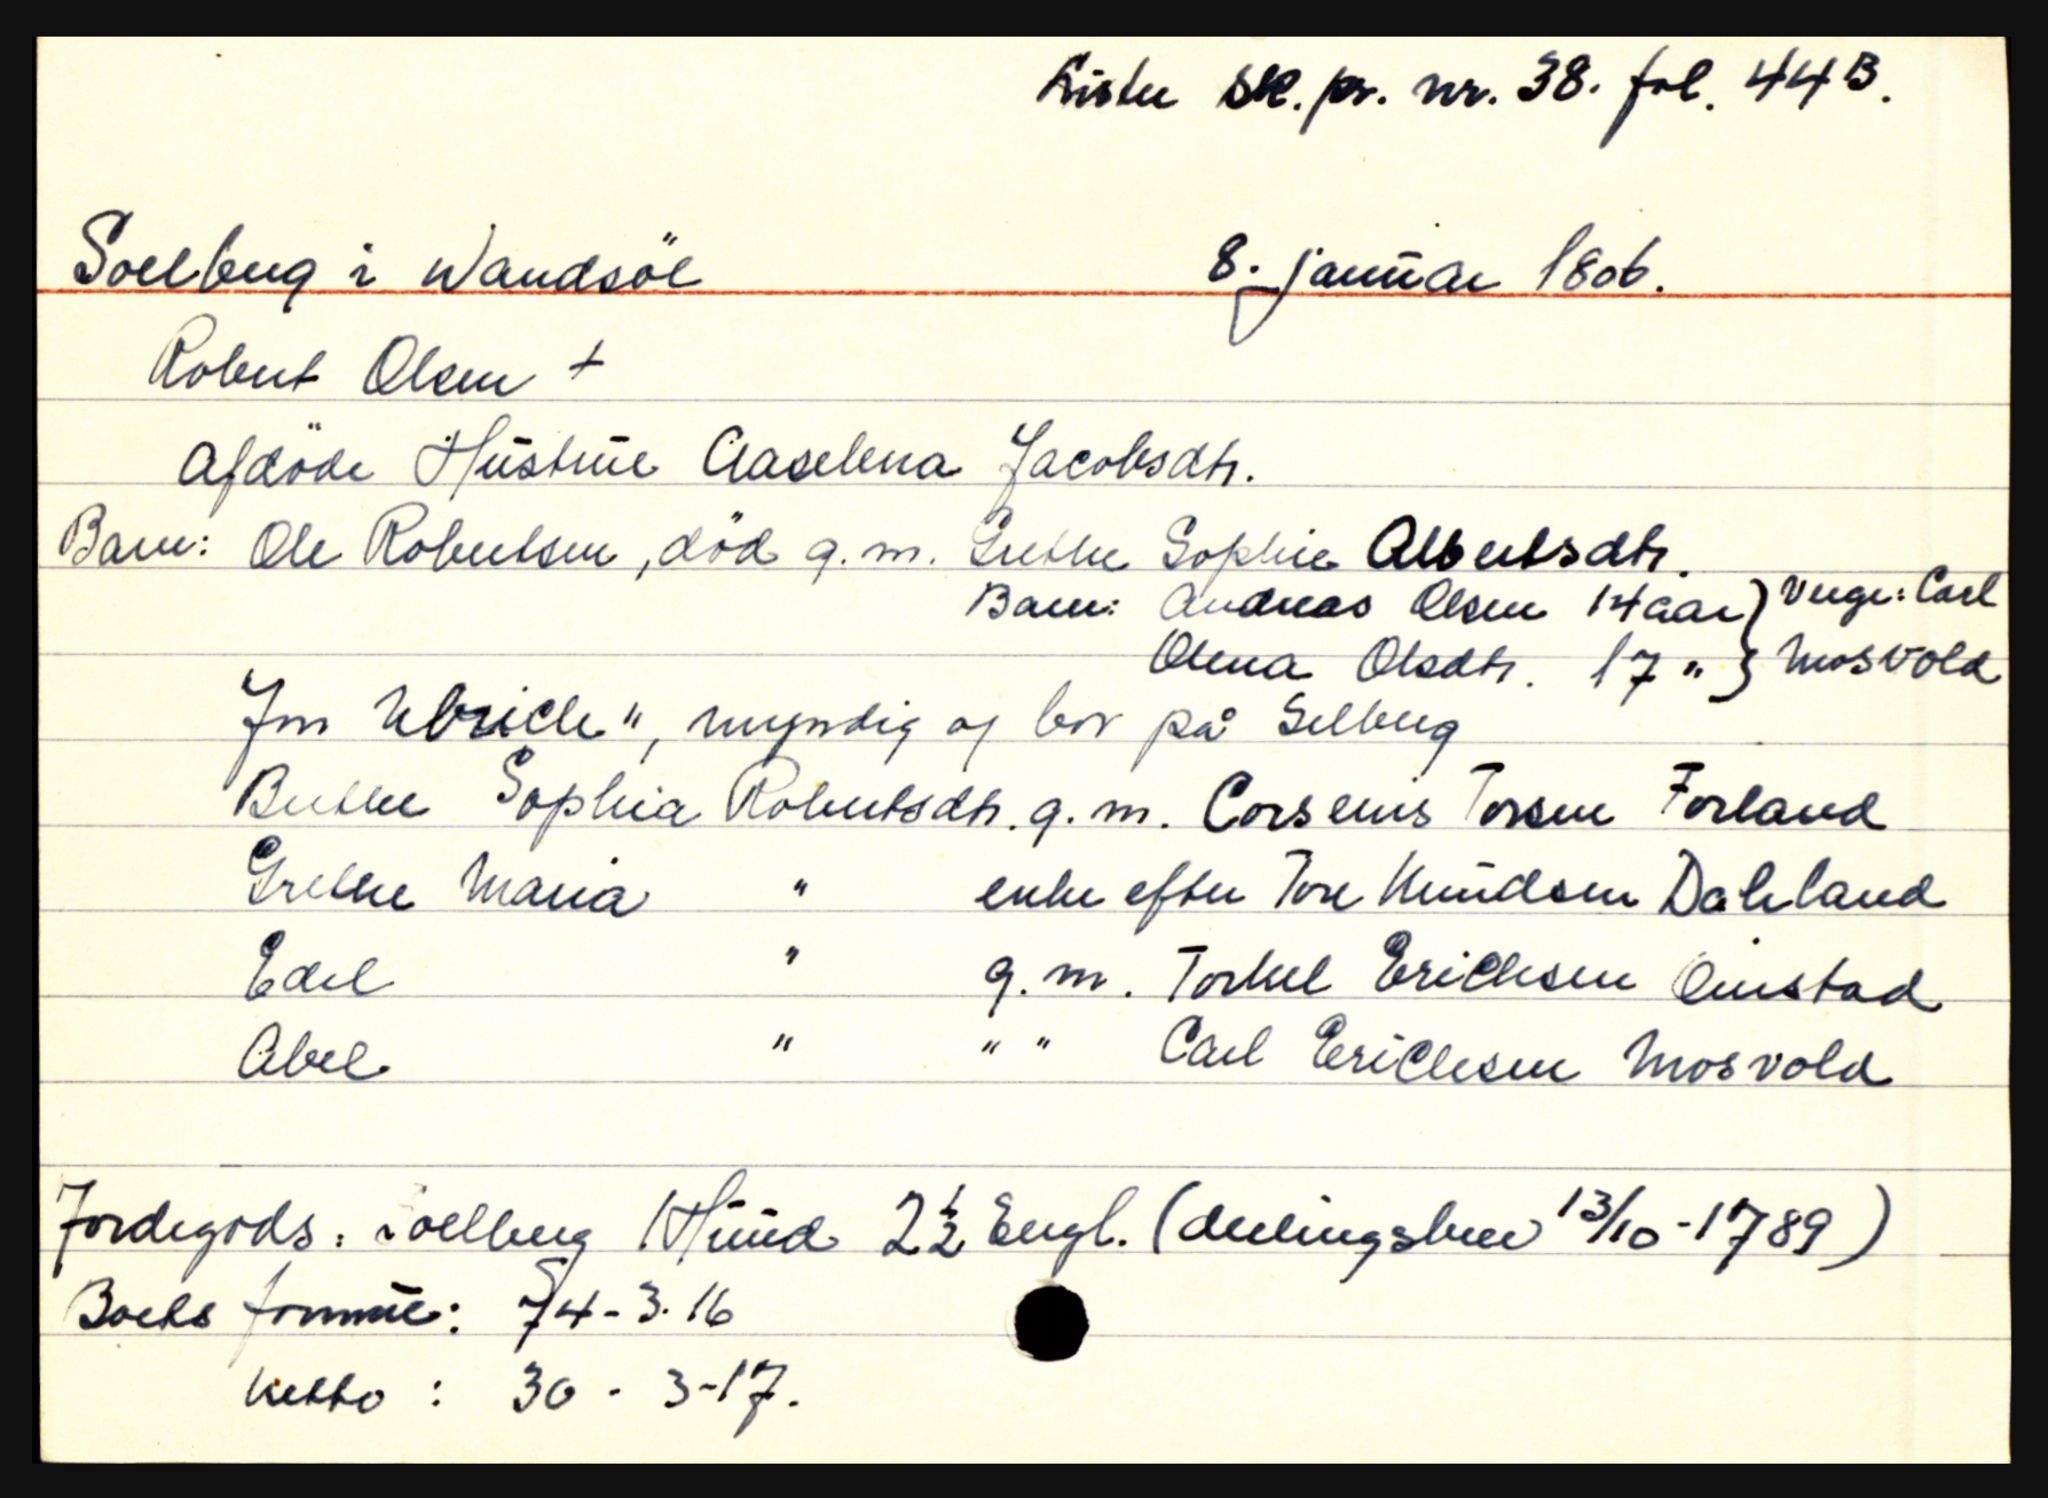 Lister Sk. pr. nr. 38. fol. 44B.
Soelberg i Wandsöe 8. januar 1806.
Robert Olsen +
Afdöde Hustrue Aaselena Jacobsdtr.
Barn: Ole Robertsen, död g. m. Grethe Sophie Albertsdtr.
Barn: Andreas Olsen 14 aar } Verge: Carl
Olena Olsdtr. 17 " } Mosvold
Jon Ubrich ", myndig og bor på Selberg
Berthe Sophia Robertsdtr. g. m. Corsenis Torsen Forland
Grethe Maria " enke efter Tore Knudsen Dahland
Edel " g. m. Torkel Erichsen Omstad
Abel " " " Carl Erichsen Mosvold
Jordegods: Soelberg 1 Hund 2½ Engl. (deelingsbrev 13/10-1789)
Boets formue: 74-3.16
Netto: 30 - 3-17.